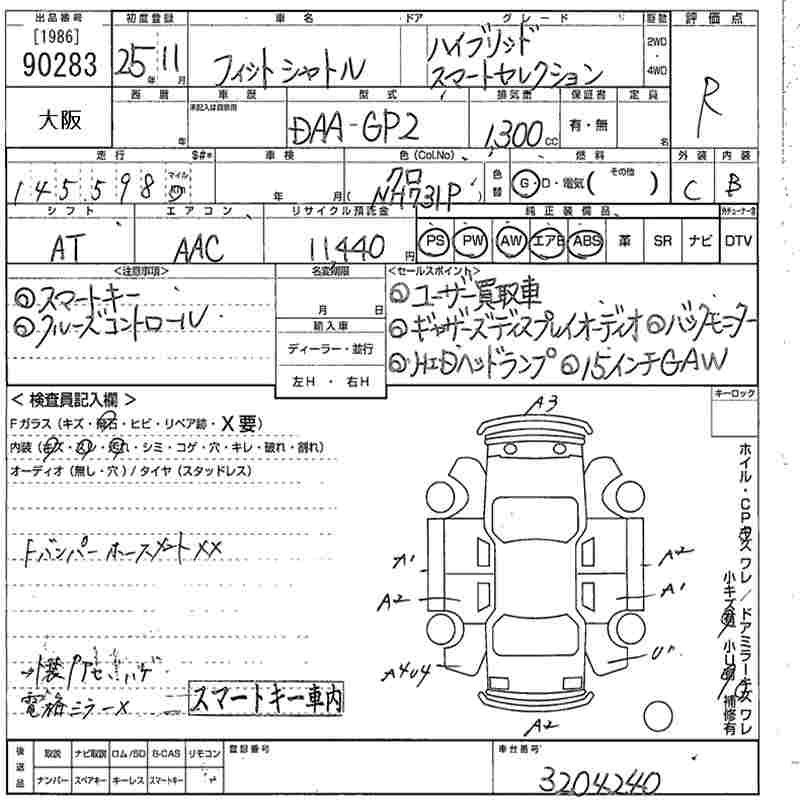 出品番号 初度登録 車名 ドア グレード 駆動 評価点
[1986] 90283 25年 11月 フィットシャトル ハイブリッド 2WD R
スマートセレクション ・ 4WD
大阪 西暦 車歴 型式 排気量 保証書 定員
年 未記入は自家用 DAA-GP2 1,300cc 有・無 名
走行 $#* 車検 色(Col.No) 色替 燃料 外装 内装
145598 マイル Km 年 月 クロ NH731P G・D・電気( その他 ) C B
シフト エアコン リサイクル預託金 純正装備品 地デジチューナー付
AT AAC 11,440円 PS PW AW エアB ABS 革 SR ナビ DTV
<注意事項> 名変期限 <セールスポイント>
◎スマートキー 月 日 ◎ユーザー買取車
◎クルーズコントロール 輸入車 ◎ギャザーズディスプレイオーディオ ◎バックモニター
ディーラー・並行 ◎HIDヘッドランプ ◎15インチGAW
左H ・ 右H
<検査員記入欄> キーロック
Fガラス(キズ・飛石・ヒビ・リペア跡・X要)
内装(キズ・スレ・汚れ・シミ・コゲ・穴・キレ・破れ・割れ)
オーディオ(無し・穴)/タイヤ(スタッドレス)
Fバンパー ホースメント XX
電格ミラーX
スマートキー車内
A3
A1 A2
A2 A1
A4U4 U
A2
ホイル・CPキズ ワレ/ドアミラーキズ ワレ
小キズ有 小U有 補修有
後送品 取説 ナビ取説 ロム/SD B-CAS リモコン 登録番号 車台番号
ナンバー スペアキー キーレス スマートキー 3204240